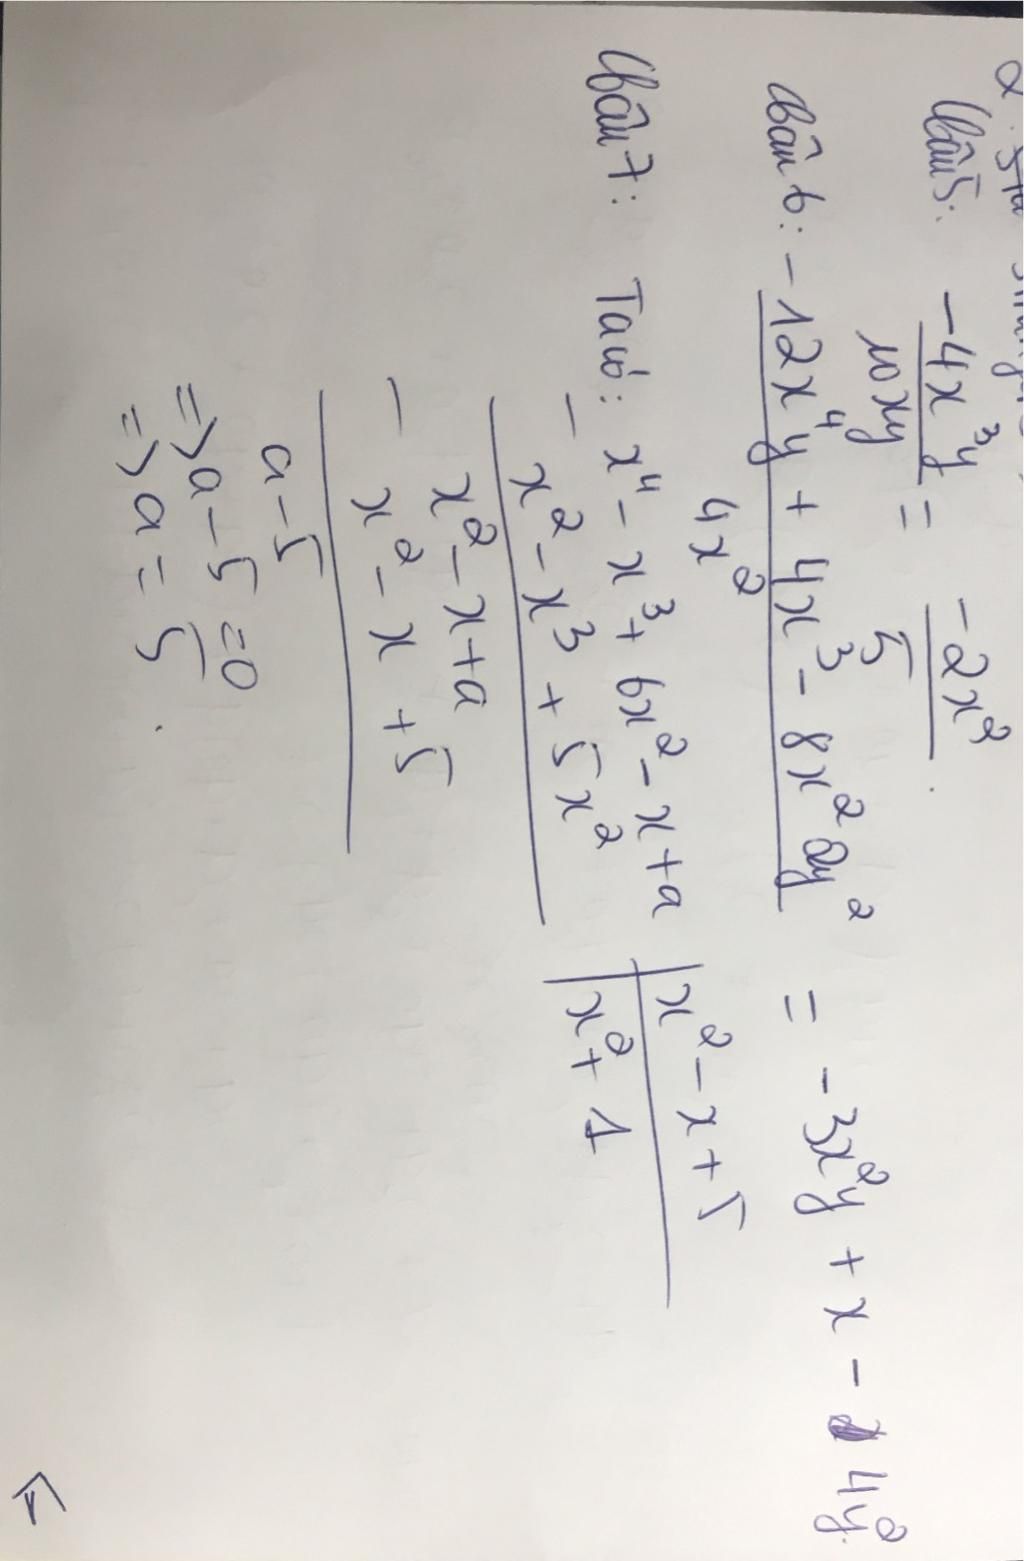 Câu 5: -4x³y / 10xy = -2x² / 5 .
Câu 6: -12x⁴y + 4x³ - 8x² 2y² / 4x² = -3x²y + x - 4y²
Câu 7: Ta có: x⁴ - x³ + 6x² - x + a | x² - x + 5
- x² - x³ + 5x² | x² + 1
x² - x + a
- x² - x + 5
a - 5
=> a - 5 = 0
=> a = 5 .